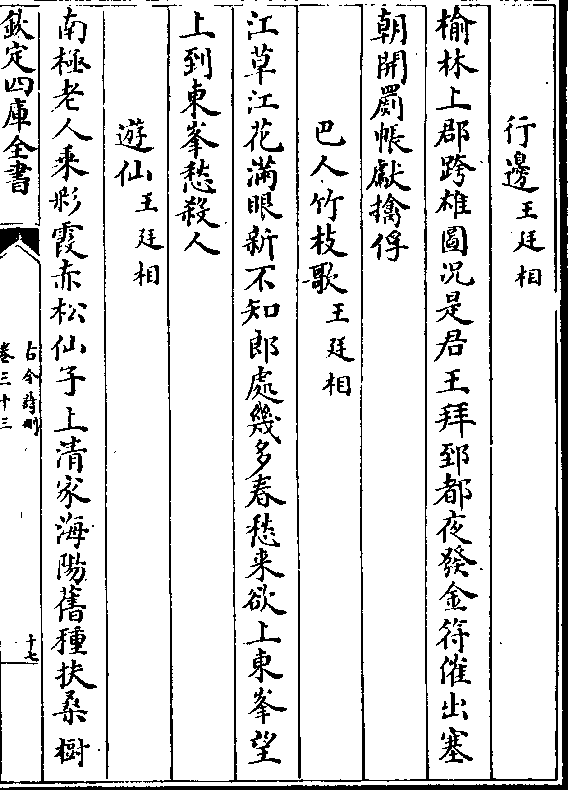 行邊王廷相
榆林上郡跨雄圖况是君王拜郅都夜發金符催出塞
朝開罽帳獻擒俘
巴人竹枝歌王廷相
江草江花滿眼新不知郎處幾多春愁来欲上東峯望
上到東峯愁殺人
遊仙王廷相
南極老人乘彤霞赤松仙子上清家海陽舊種扶桑樹
欽定四庫全書
古今詩刪
卷三十三
十七